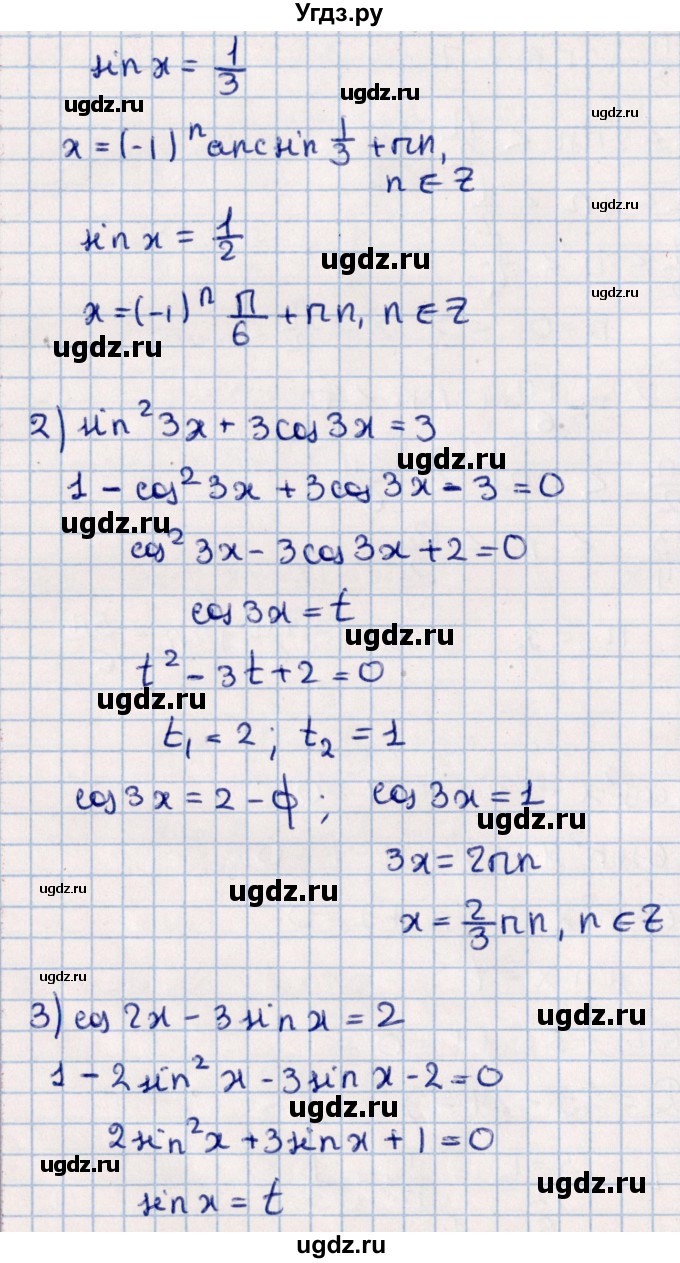 Угдз.ру
sin x = 1/3
ugdz.ru ugdz.ru ugdz.ru
x = (-1)ⁿ arcsin 1/3 + πn,
n ∈ Z
ugdz.ru
sin x = 1/2
ugdz.ru ugdz.ru
x = (-1)ⁿ π/6 + πn, n ∈ Z
ugdz.ru
2) sin² 3x + 3cos 3x = 3
ugdz.ru
1 - cos² 3x + 3cos 3x - 3 = 0
ugdz.ru
cos² 3x - 3cos 3x + 2 = 0
cos 3x = t
ugdz.ru
t² - 3t + 2 = 0
ugdz.ru
t₁ = 2; t₂ = 1
cos 3x = 2 - ф; cos 3x = 1
ugdz.ru
3x = 2πn
ugdz.ru ugdz.ru
x = 2/3 πn, n ∈ Z
ugdz.ru
3) cos 2x - 3 sin x = 2
ugdz.ru
1 - 2sin² x - 3sin x - 2 = 0
ugdz.ru
2sin² x + 3sin x + 1 = 0
ugdz.ru
sin x = t
ugdz.ru
ugdz.ru